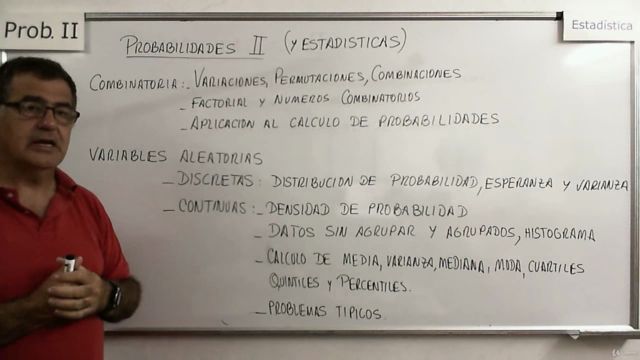 Prob. II
Estadística
PROBABILIDADES II (Y ESTADISTICAS)
COMBINATORIA:- VARIACIONES, PERMUTACIONES, COMBINACIONES
- FACTORIAL Y NUMEROS COMBINATORIOS
- APLICACION AL CALCULO DE PROBABILIDADES
VARIABLES ALEATORIAS
- DISCRETAS: DISTRIBUCION DE PROBABILIDAD, ESPERANZA Y VARIANZA
- CONTINUAS:- DENSIDAD DE PROBABILIDAD
- DATOS SIN AGRUPAR Y AGRUPADOS, HISTOGRAMA
- CALCULO DE MEDIA, VARIANZA, MEDIANA, MODA, CUARTILES
QUINTILES Y PERCENTILES.
- PROBLEMAS TIPICOS.